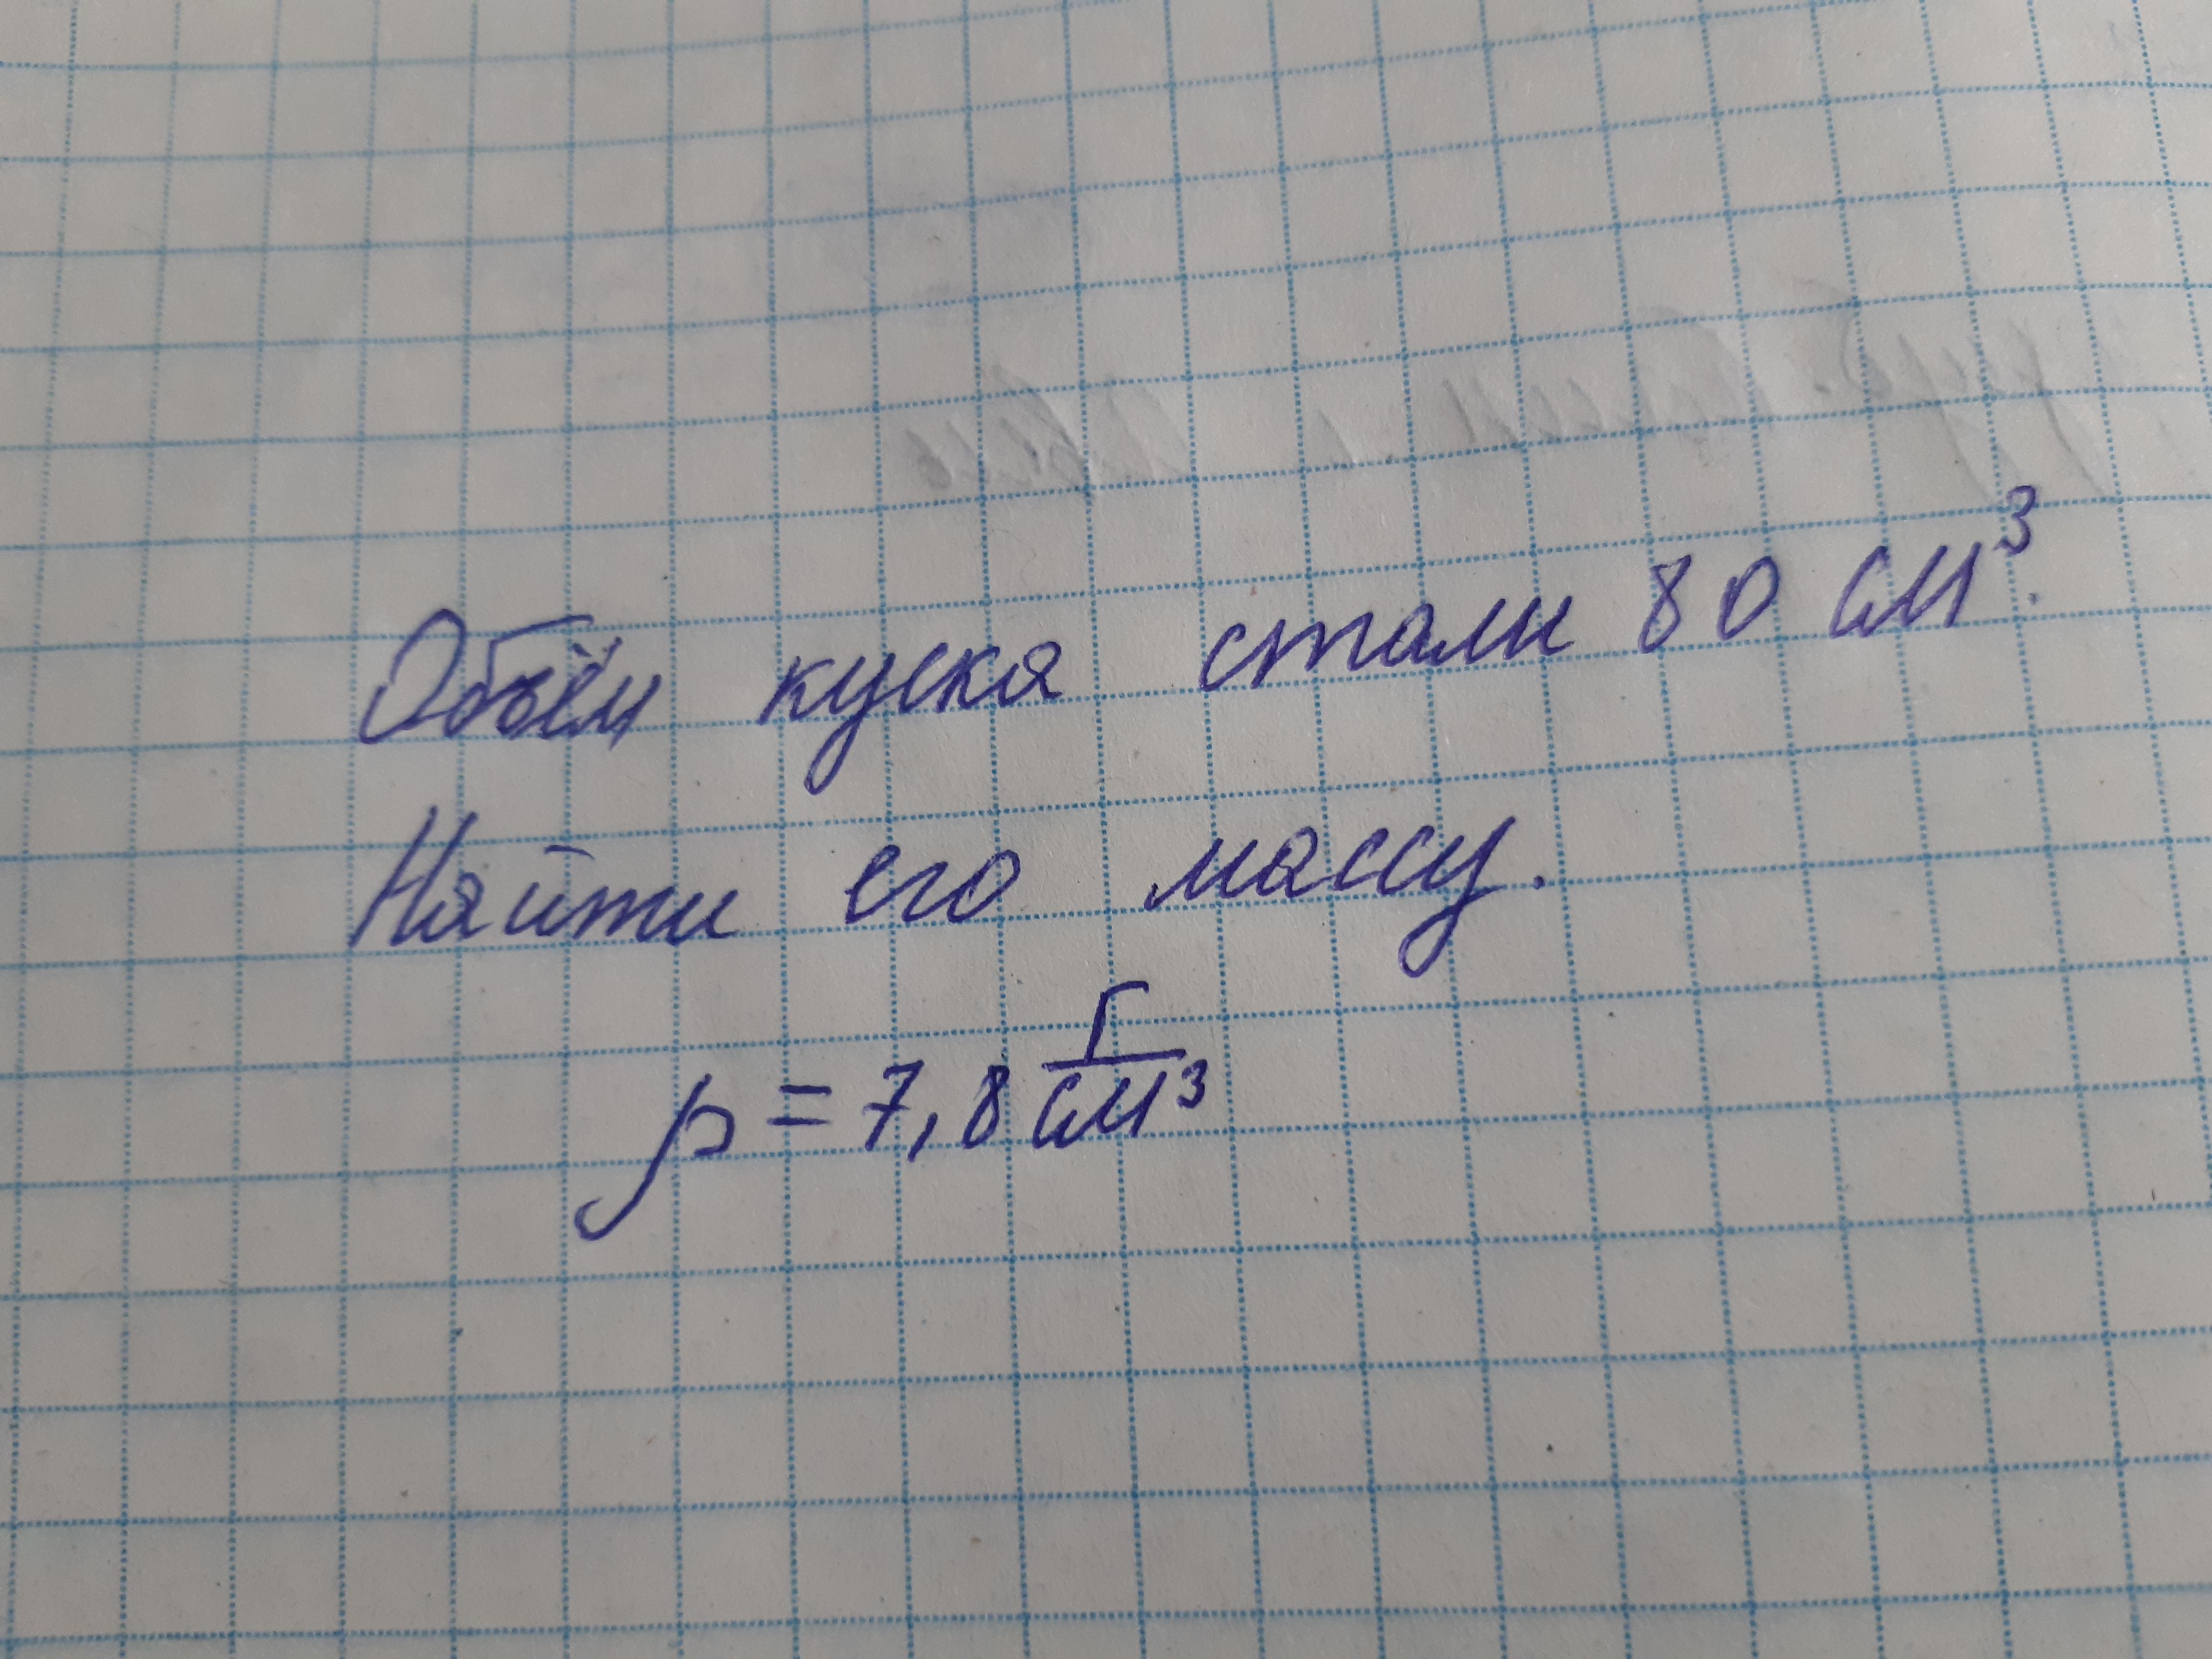 Объём куска стали 80 см³.
Найти его массу.
ρ = 7,8 г/см³